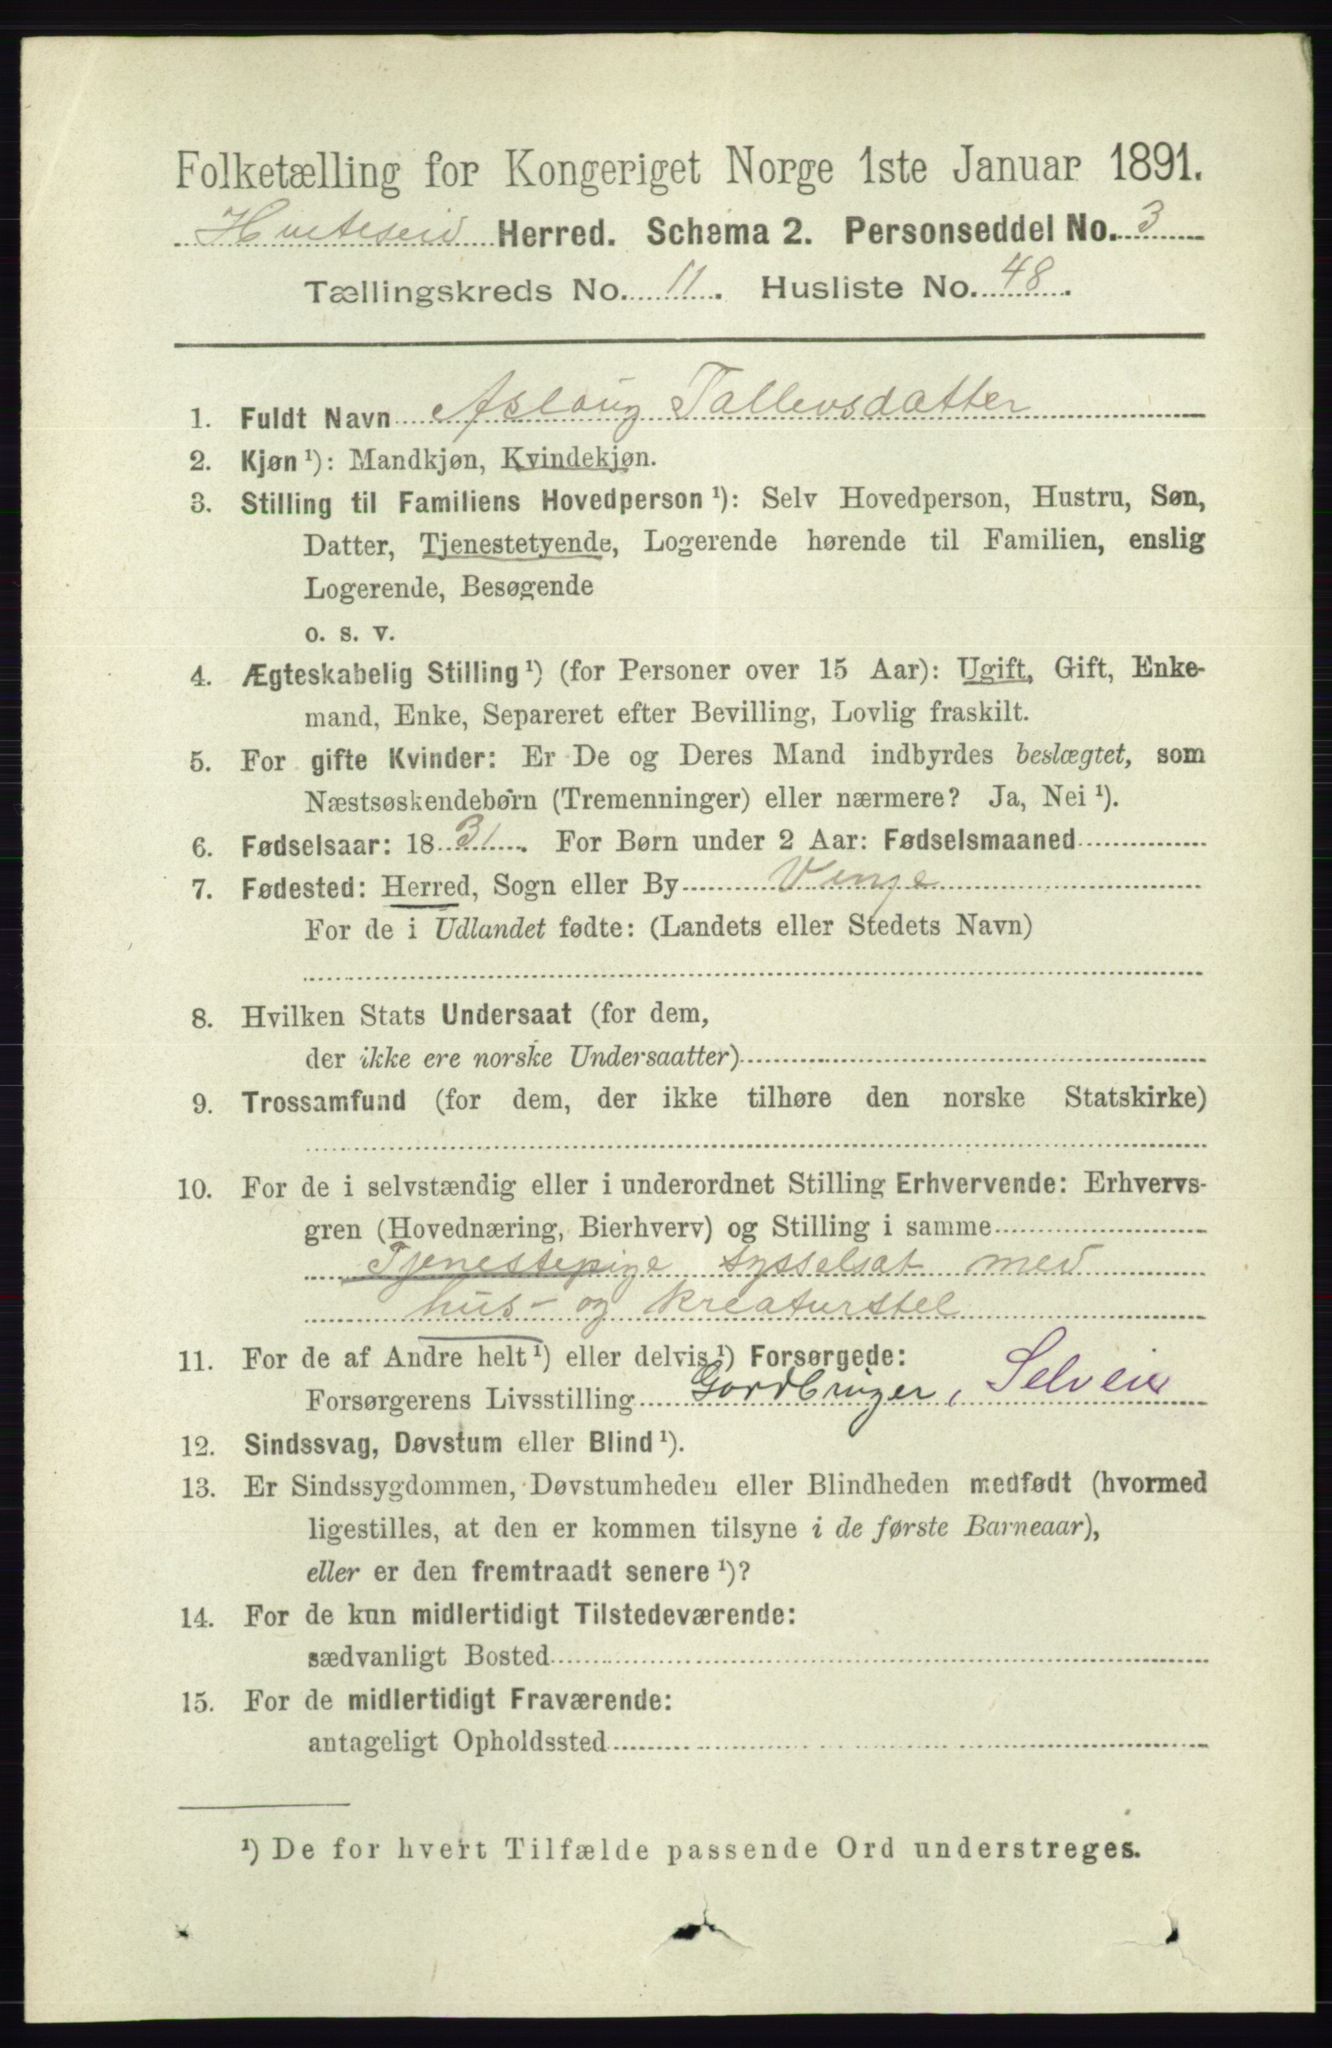 Folketælling for Kongeriget Norge 1ste Januar 1891.
Hviteseid Herred. Schema 2. Personseddel No. 3
Tællingskreds No. 11. Husliste No. 48.
1. Fuldt Navn Aslaug Tallevsdatter
2. Kjøn ¹): Mandkjøn, Kvindekjøn.
3. Stilling til Familiens Hovedperson ¹): Selv Hovedperson, Hustru, Søn,
Datter, Tjenestetyende, Logerende hørende til Familien, enslig
Logerende, Besøgende
o. s. v.
4. Ægteskabelig Stilling ¹) (for Personer over 15 Aar): Ugift, Gift, Enke-
mand, Enke, Separeret efter Bevilling, Lovlig fraskilt.
5. For gifte Kvinder: Er De og Deres Mand indbyrdes beslægtet, som
Næstsøskendebørn (Tremenninger) eller nærmere? Ja, Nei ¹).
6. Fødselsaar: 1831. For Børn under 2 Aar: Fødselsmaaned
7. Fødested: Herred, Sogn eller By Vinje
For de i Udlandet fødte: (Landets eller Stedets Navn)
8. Hvilken Stats Undersaat (for dem,
der ikke ere norske Undersaatter)
9. Trossamfund (for dem, der ikke tilhøre den norske Statskirke)
10. For de i selvstændig eller i underordnet Stilling Erhvervende: Erhvervs-
gren (Hovednæring, Bierhverv) og Stilling i samme
Tjenestepige sysselsat med
hus- og kreaturstel
11. For de af Andre helt ¹) eller delvis ¹) Forsørgede:
Forsørgerens Livsstilling Gardbruger, Selveier
12. Sindssvag, Døvstum eller Blind ¹).
13. Er Sindssygdommen, Døvstumheden eller Blindheden medfødt (hvormed
ligestilles, at den er kommen tilsyne i de første Barneaar),
eller er den fremtraadt senere ¹)?
14. For de kun midlertidigt Tilstedeværende:
sædvanligt Bosted
15. For de midlertidigt Fraværende:
antageligt Opholdssted
¹) De for hvert Tilfælde passende Ord understreges.